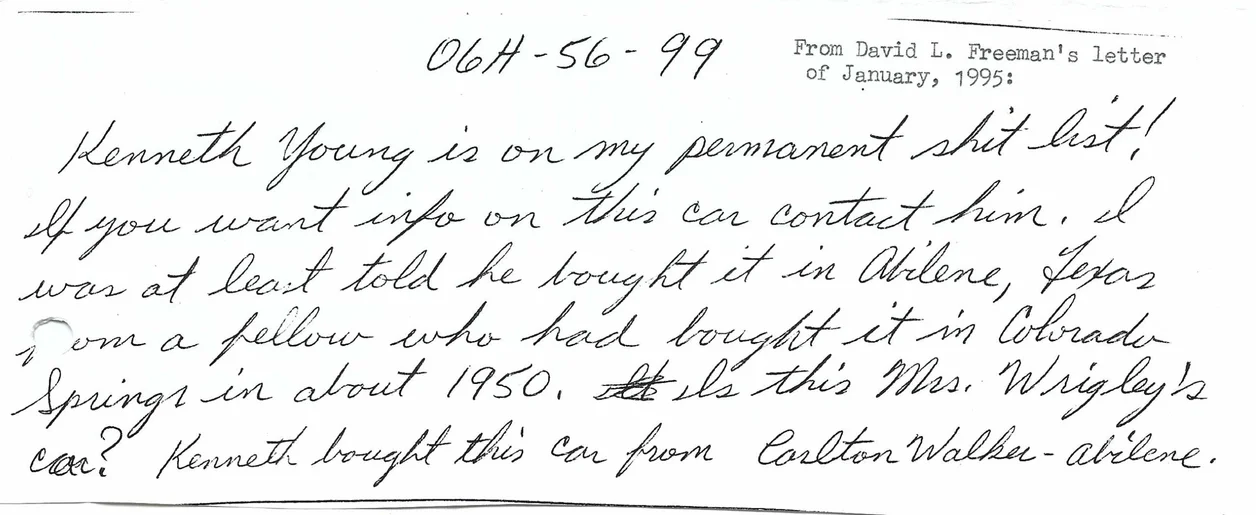 06H-56-99
From David L. Freeman's letter
of January, 1995:
Kenneth Young is on my permanent shit list!
If you want info on this car contact him. I
was at least told he bought it in Abilene, Texas
from a fellow who had bought it in Colorado
Springs in about 1950. Is this Mrs. Wrigley's
car? Kenneth bought this car from Carlton Walker - Abilene.